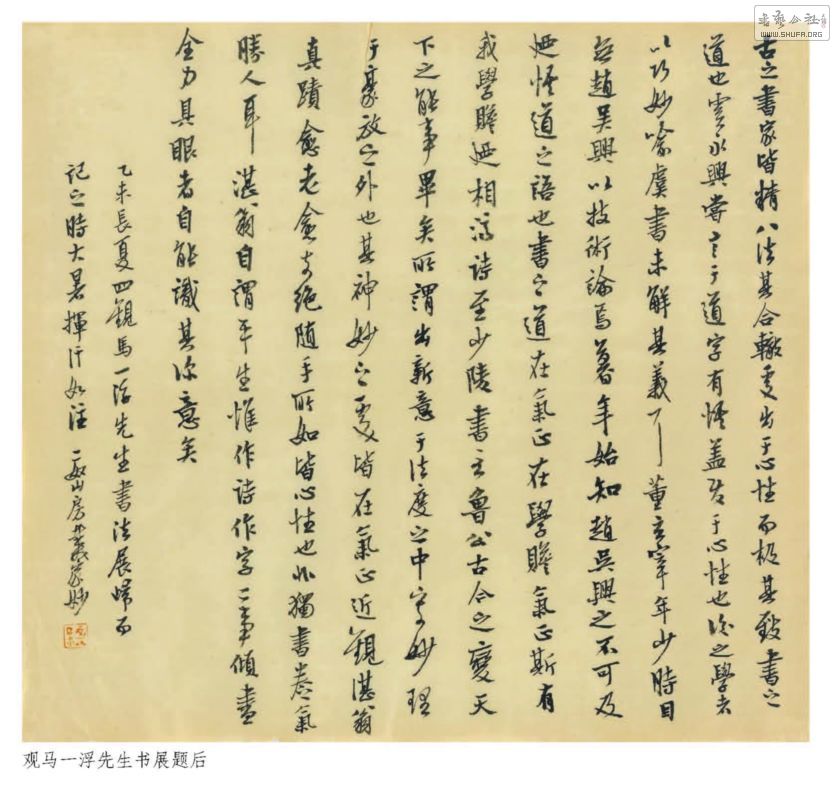 古之書家皆精八法其合轍處出于心性而極其致書之
道也虞永興嘗言于道字有悟蓋發于心性也後之學者
以巧妙喻虞書未解其義丁董玄宰年少時目
無趙吳興以技術論焉暮年始知趙吳興之不可及
迺悟道之語也書之道在氣正在學贍氣正斯有
我學贍迺相濟詩至少陵書至魯公古今之變天
下之能事畢矣所謂出新意于法度之中寄妙理
于豪放之外也其神妙之處皆在氣正近觀湛翁
真蹟愈老愈奇絕隨手所如皆心性也非獨書卷氣
勝人耳湛翁自謂平生惟作詩作字二事傾盡
全力具眼者自能識其深意矣
乙未長夏四觀馬一浮先生書法展歸而
記之時大暑揮汗如注 一畝山房叢家妙
观马一浮先生书展题后
書藝公社
WWW.SHUFA.ORG